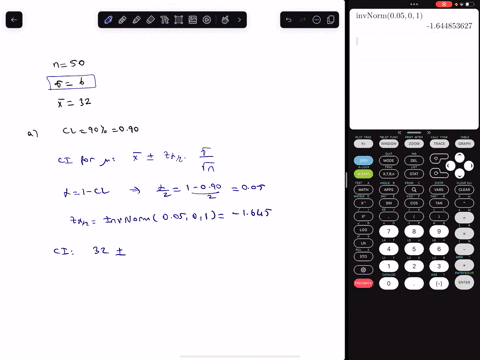 n=50
σ=6
x̄=32
a) CL=90%=0.90
CI for μ: x̄ ± zα/2 · σ/√n
α=1-CL ⇒ α/2 = 1-0.90/2 = 0.05
zα/2 = ±invNorm(0.05,0,1) = -1.645
CI: 32 ±
invNorm(0.05,0,1)
-1.644853627
Y=
WINDOW
ZOOM
TRACE
GRAPH
2ND
MODE
DEL
ALPHA
X,T,θ,n
STAT
MATH
APPS
PRGM
VARS
CLEAR
x⁻¹
SIN
COS
TAN
^
x²
,
(
)
÷
LOG
7
8
9
×
LN
4
5
6
-
STO
1
2
3
+
0
.
(-)
ENTER